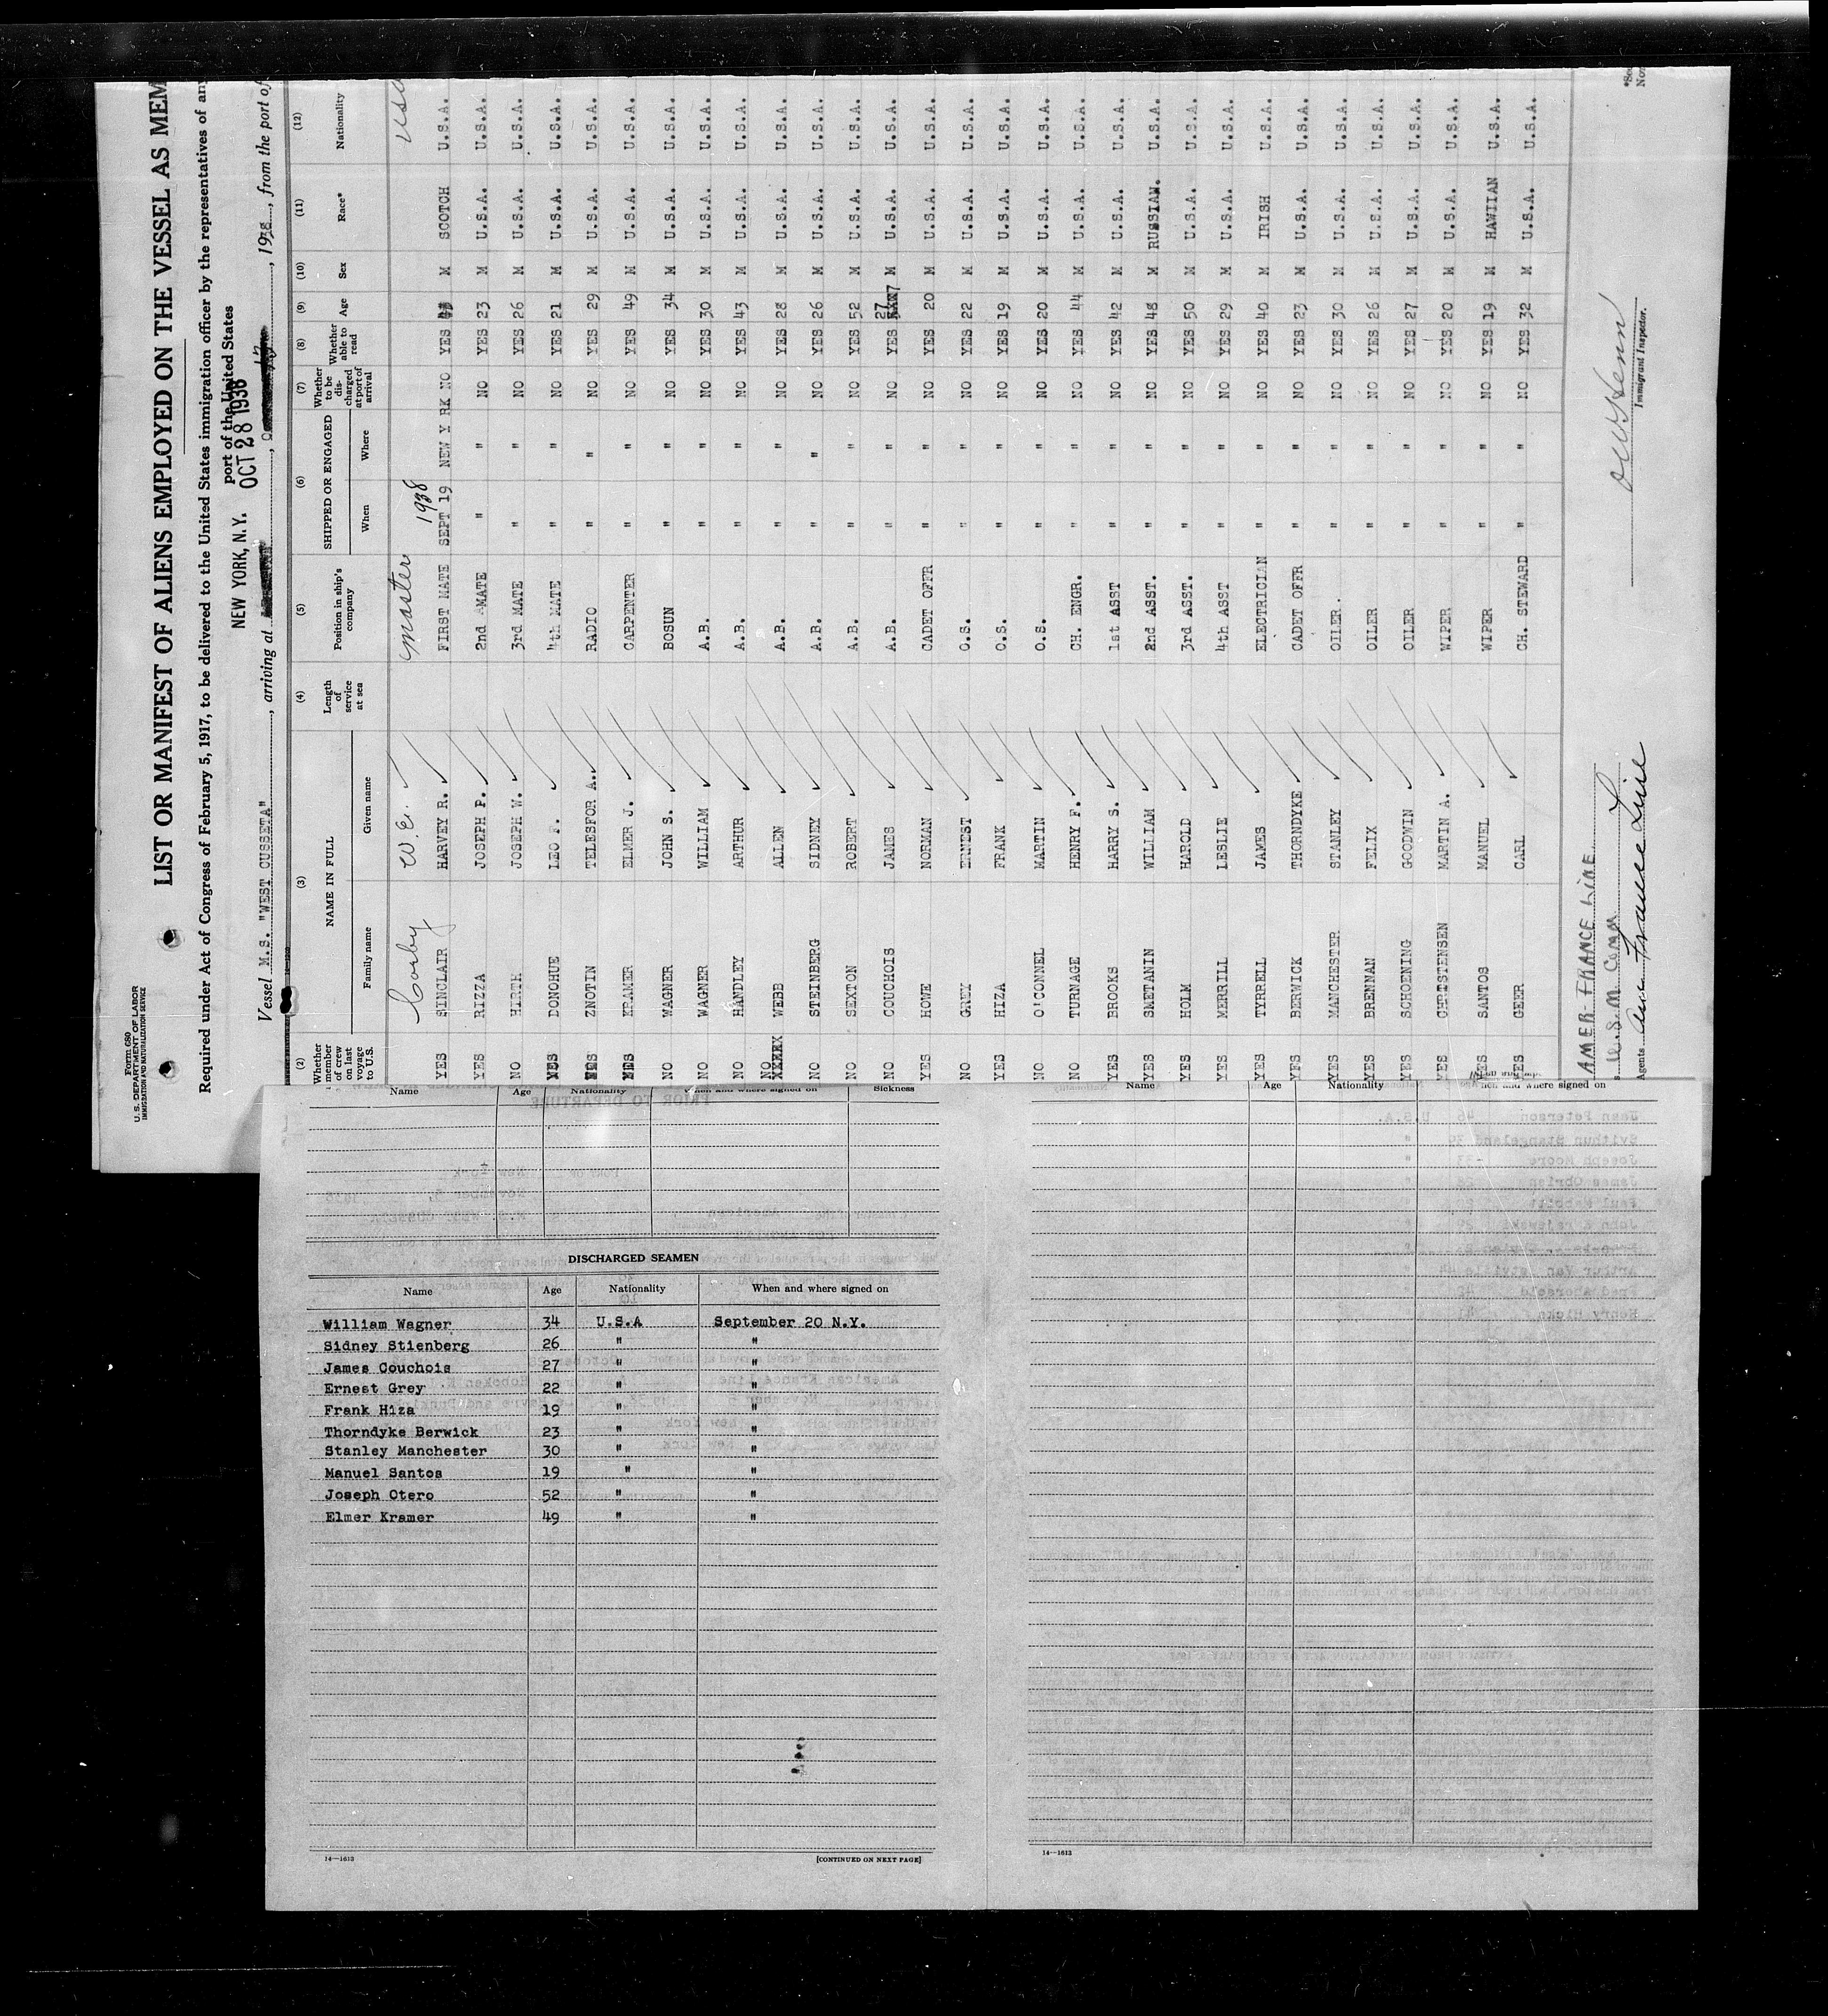 Form 680
U.S. DEPARTMENT OF LABOR
IMMIGRATION AND NATURALIZATION SERVICE
LIST OR MANIFEST OF ALIENS EMPLOYED ON THE VESSEL AS MEM
Required under Act of Congress of February 5, 1917, to be delivered to the United States immigration officer by the representatives of any
port of the United States
NEW YORK, N.Y. OCT 28 1938
Vessel M.S. "WEST CUSSETA", arriving at , 1938, from the port of
(2) (3) (4) (5) (6) (7) (8) (9) (10) (11) (12)
Whether member of crew on last voyage to U.S. NAME IN FULL Family name Given name Length of service at sea Position in ship's company SHIPPED OR ENGAGED When Where Whether to be discharged at port of arrival Whether able to read Age Sex Race* Nationality
Corby W. E. Master usa
1938
YES SINCLAIR HARVEY R. FIRST MATE SEPT 19 NEW Y RK NO YES M SCOTCH U.S.A.
YES RIZZA JOSEPH P. 2nd MATE " " NO YES 23 M U.S.A. U.S.A.
NO HIRTH JOSEPH W. 3rd MATE " " NO YES 26 M U.S.A. U.S.A.
DONOHUE LEO F. 4th MATE " " NO YES 21 M U.S.A. U.S.A.
ZNOTIN TELESFOR A.. RADIO " " NO YES 29 M U.S.A. U.S.A.
KRAMER ELMER J. CARPENTER " " NO YES 49 M U.S.A. U.S.A.
NO WAGNER JOHN S. BOSUN " " NO YES 34 M U.S.A. U.S.A.
NO WAGNER WILLIAM A.B. " " NO YES 30 M U.S.A. U.S.A.
NO HANDLEY ARTHUR A.B. " " NO YES 43 M U.S.A. U.S.A.
NO WEBB ALLEN A.B. " " NO YES 28 M U.S.A. U.S.A.
NO STEINBERG SIDNEY A.B. " " NO YES 26 M U.S.A. U.S.A.
NO SEXTON ROBERT A.B. " " NO YES 52 M U.S.A. U.S.A.
NO COUCHOIS JAMES A.B. " " NO YES 27 M U.S.A. U.S.A.
YES HOWE NORMAN CADET OFFR " " NO YES 20 M U.S.A. U.S.A.
NO GREY ERNEST O.S. " " NO YES 22 M U.S.A. U.S.A.
YES HIZA FRANK O.S. " " NO YES 19 M U.S.A. U.S.A.
NO O'CONNEL MARTIN O.S. " " NO YES 20 M U.S.A. U.S.A.
NO TURNAGE HENRY F. CH. ENGR. " " NO YES 44 M U.S.A. U.S.A.
YES BROOKS HARRY S. 1st ASST " " NO YES 42 M U.S.A. U.S.A.
YES SMETANIN WILLIAM 2nd ASST. " " NO YES 48 M RUSSIAN. U.S.A.
YES HOLM HAROLD 3rd ASST. " " NO YES 50 M U.S.A. U.S.A.
YES MERRILL LESLIE 4th ASST " " NO YES 29 M U.S.A. U.S.A.
YES TYRRELL JAMES ELECTRICIAN " " NO YES 40 M IRISH U.S.A.
YES BERWICK THORNDYKE CADET OFFR " " NO YES 23 M U.S.A. U.S.A.
YES MANCHESTER STANLEY OILER. " " NO YES 30 M U.S.A. U.S.A.
YES BRENNAN FELIX OILER " " NO YES 26 M U.S.A. U.S.A.
YES SCHOENING GOODWIN OILER " " NO YES 27 M U.S.A. U.S.A.
YES CHRISTENSEN MARTIN A. WIPER " " NO YES 20 M U.S.A. U.S.A.
YES SANTOS MANUEL WIPER " " NO YES 19 M HAWIIAN U.S.A.
YES GEER CARL CH. STEWARD " " NO YES 32 M U.S.A. U.S.A.
AMER-FRANCE LINE
U.S.M.
Agents Amer France Line
Immigrant Inspector.
Name Age Nationality When and where signed on Sickness
DISCHARGED SEAMEN
Name Age Nationality When and where signed on
William Wagner 34 U.S.A September 20 N.Y.
Sidney Stienberg 26 " "
James Couchois 27 " "
Ernest Grey 22 " "
Frank Hiza 19 " "
Thorndyke Berwick 23 " "
Stanley Manchester 30 " "
Manuel Santos 19 " "
Joseph Otero 52 " "
Elmer Kramer 49 " "
14—1613 [CONTINUED ON NEXT PAGE]
Name Age Nationality When and where signed on
14—1613